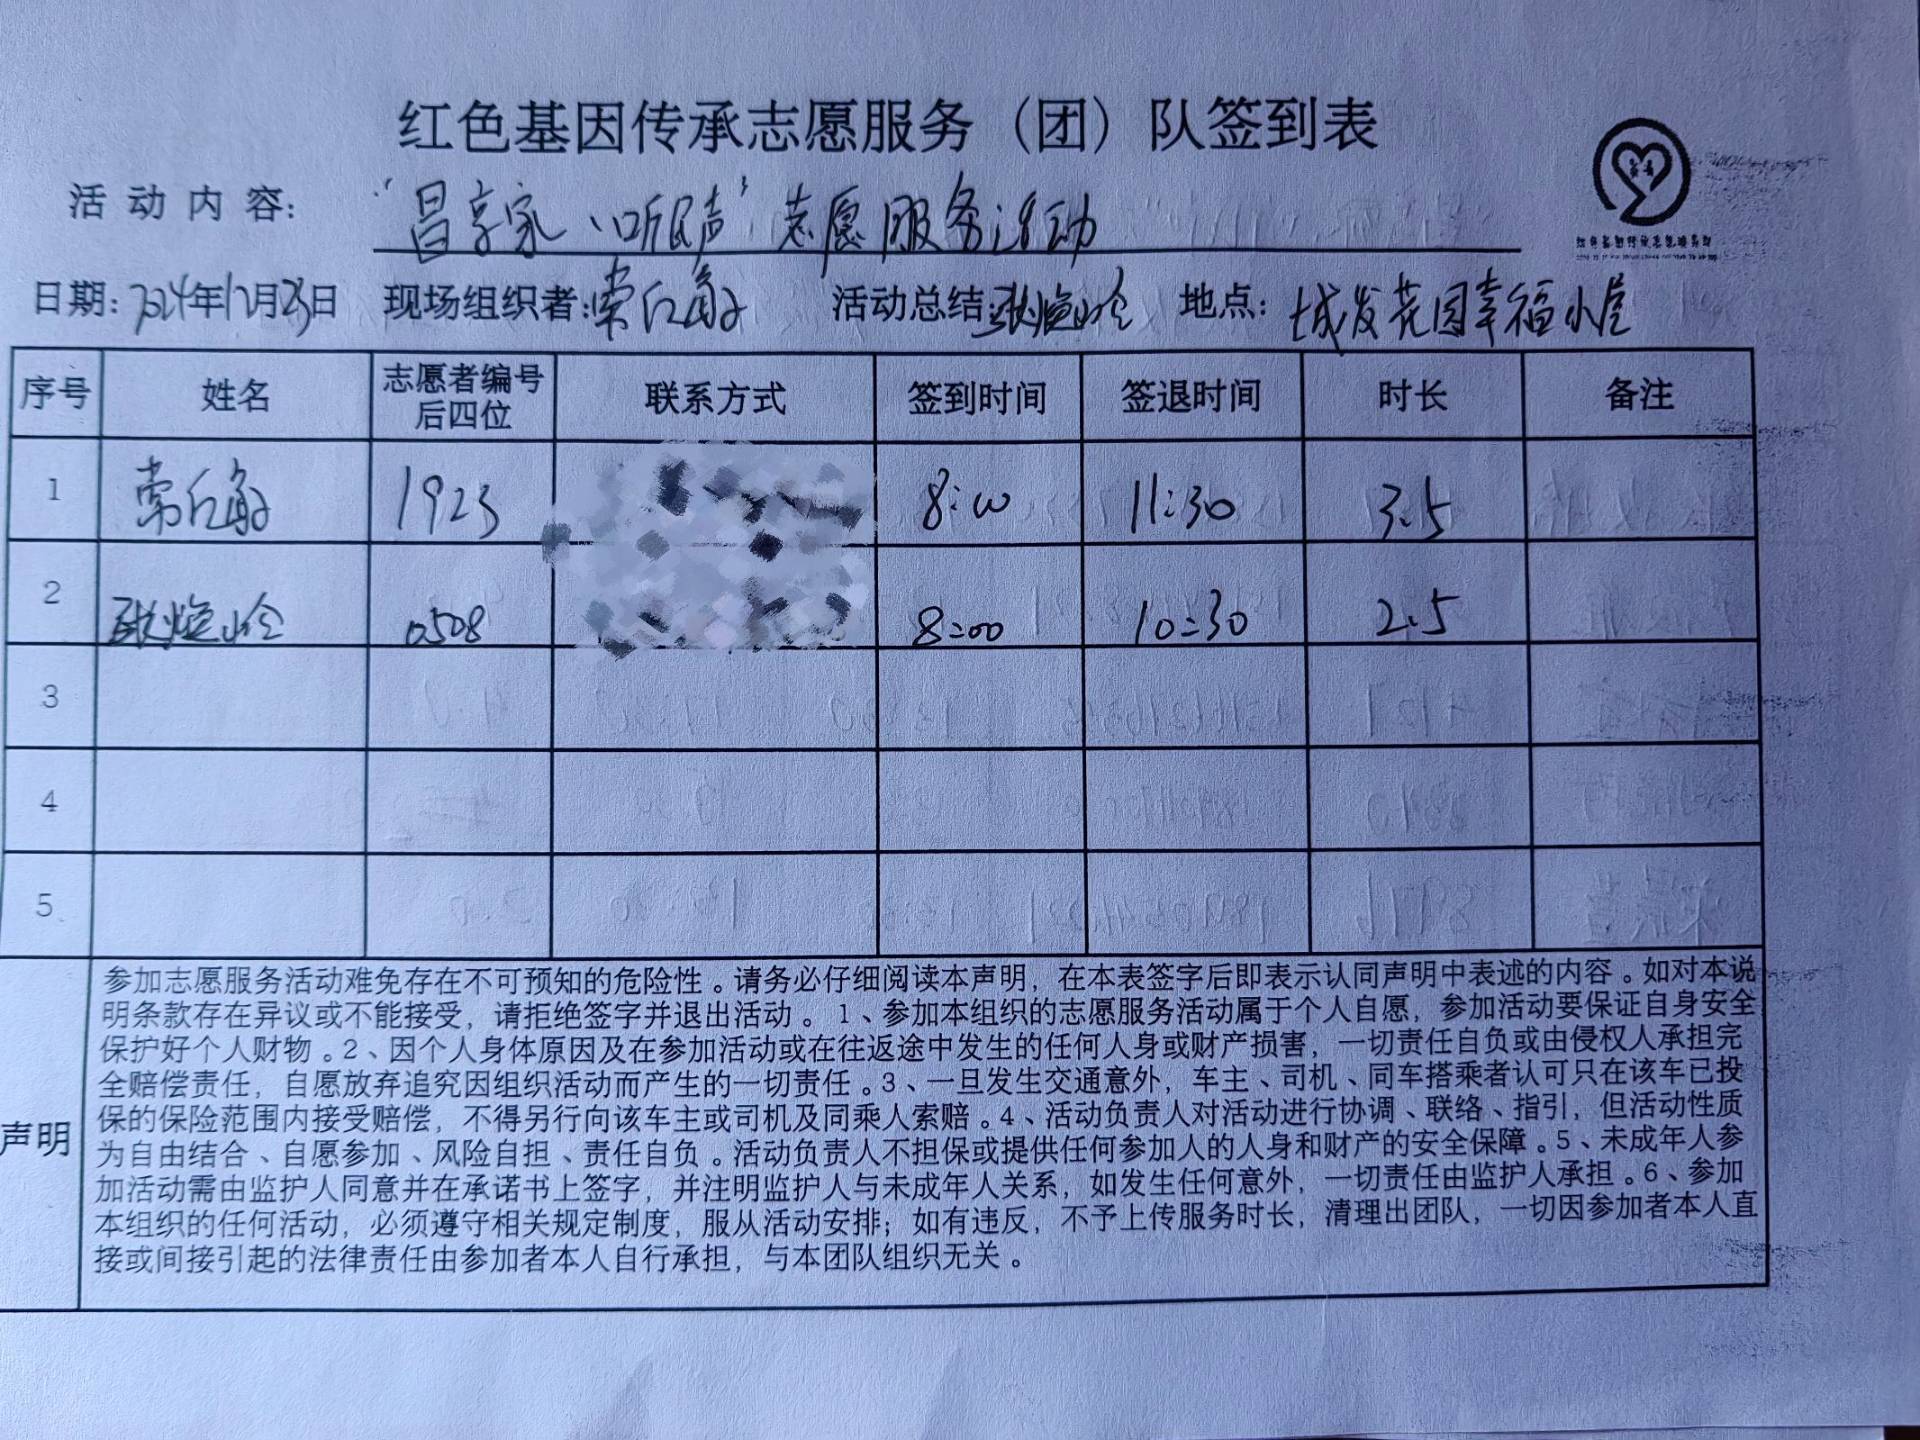 红色基因传承志愿服务（团）队签到表
活动内容：“昌享家、听民声”志愿服务活动
日期：2024年12月23日 现场组织者： 活动总结： 地点：城发花园幸福小屋
序号 姓名 志愿者编号后四位 联系方式 签到时间 签退时间 时长 备注
1 1923 8:00 11:30 3.5
2 0508 8:00 10:30 2.5
3
4
5
声明
参加志愿服务活动难免存在不可预知的危险性。请务必仔细阅读本声明，在本表签字后即表示认同声明中表述的内容。如对本说
明条款存在异议或不能接受，请拒绝签字并退出活动。1、参加本组织的志愿服务活动属于个人自愿，参加活动要保证自身安全
保护好个人财物。2、因个人身体原因及在参加活动或在往返途中发生的任何人身或财产损害，一切责任自负或由侵权人承担完
全赔偿责任，自愿放弃追究因组织活动而产生的一切责任。3、一旦发生交通意外，车主、司机、同车搭乘者认可只在该车已投
保的保险范围内接受赔偿，不得另行向该车主或司机及同乘人索赔。4、活动负责人对活动进行协调、联络、指引，但活动性质
为自由结合、自愿参加、风险自担、责任自负。活动负责人不担保或提供任何参加人的人身和财产的安全保障。5、未成年人参
加活动需由监护人同意并在承诺书上签字，并注明监护人与未成年人关系，如发生任何意外，一切责任由监护人承担。6、参加
本组织的任何活动，必须遵守相关规定制度，服从活动安排；如有违反，不予上传服务时长，清理出团队，一切因参加者本人直
接或间接引起的法律责任由参加者本人自行承担，与本团队组织无关。